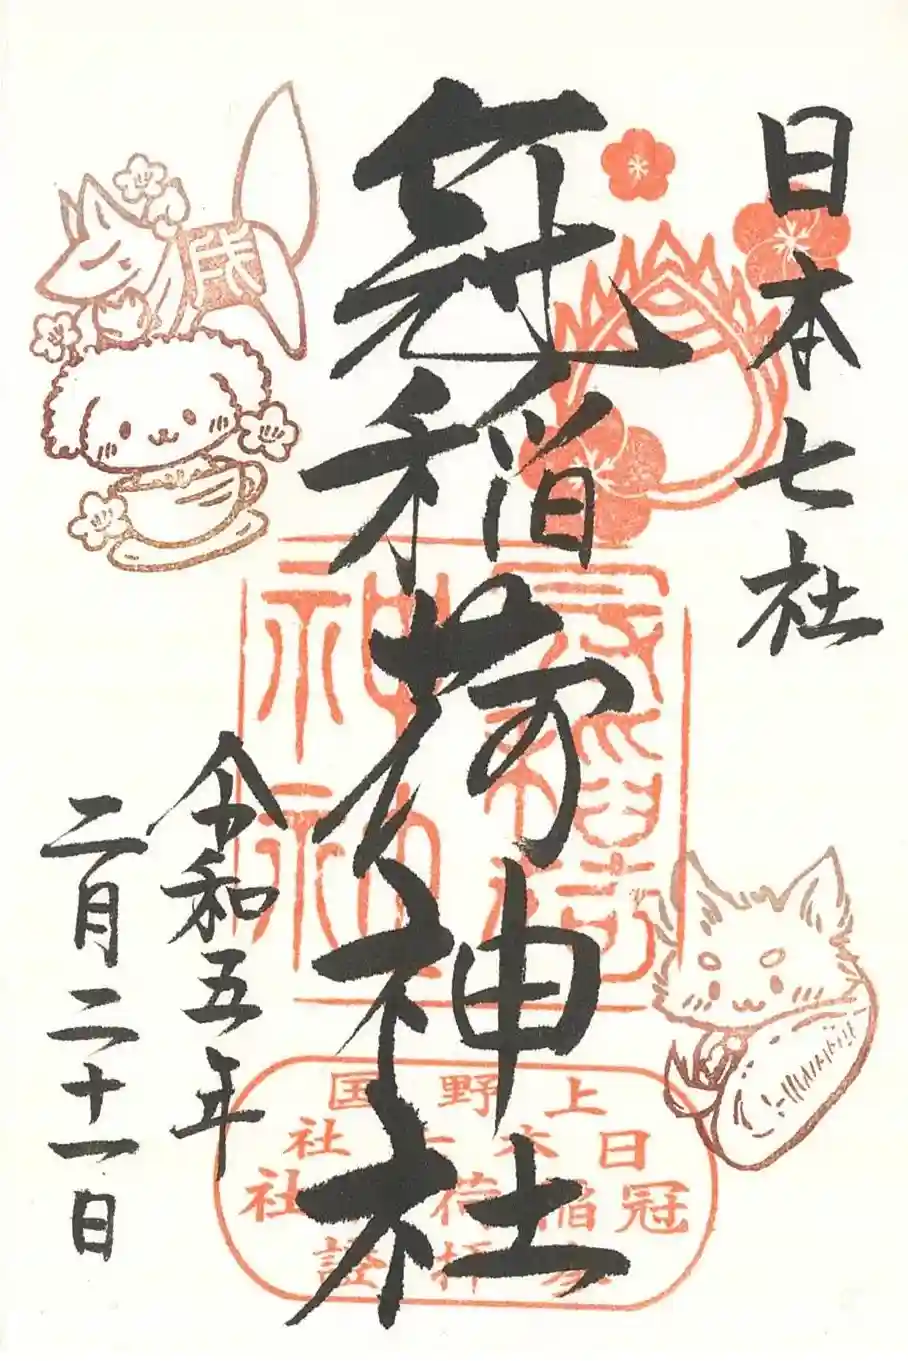 日本七社
冠稲荷神社
令和五年
二月二十一日
上野国
日本七社
冠稲荷社
参拝證